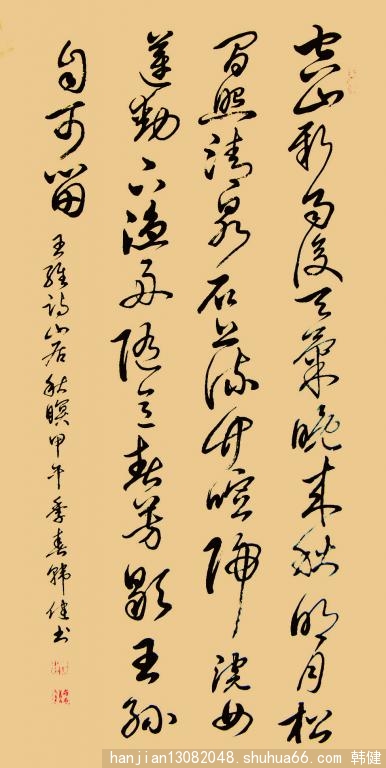 空山新雨後天氣晚来秋明月松
間照清泉石上流竹喧歸浣女
蓮動下漁舟随意春芳歇王孫
自可留
王維詩山居秋暝甲午季春韓健书
hanjian13082048.shuhua66.com 韩健